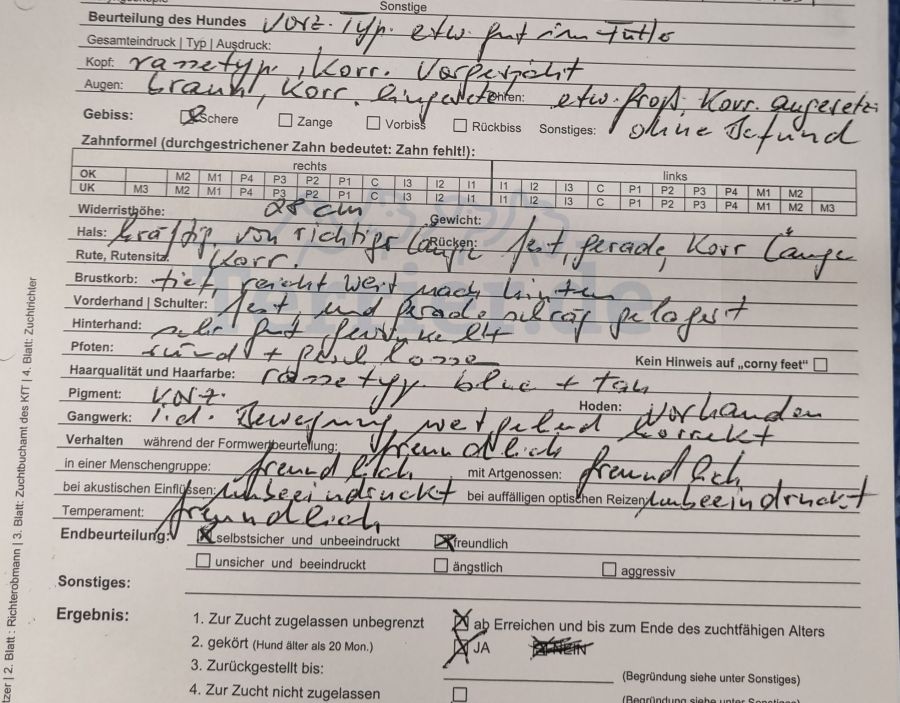 Sonstige
Beurteilung des Hundes vorz. Typ. etw. gut im Futter
Gesamteindruck | Typ | Ausdruck:
Kopf: rassetyp., Korr. Vorgesicht
Augen: braun, Korr. eingesetzt Ohren: etw. groß, Korr. angesetzt
Gebiss: ☒ Schere ☐ Zange ☐ Vorbiss ☐ Rückbiss Sonstiges: ohne Befund
Zahnformel (durchgestrichener Zahn bedeutet: Zahn fehlt!):
rechts links
OK M2 M1 P4 P3 P2 P1 C I3 I2 I1 I1 I2 I3 C P1 P2 P3 P4 M1 M2
UK M3 M2 M1 P4 P3 P2 P1 C I3 I2 I1 I1 I2 I3 C P1 P2 P3 P4 M1 M2 M3
Widerristhöhe: 28 cm Gewicht:
Hals: kräftig, von richtiger Länge Rücken: fest, gerade, Korr Länge
Rute, Rutensitz: Korr.
Brustkorb: tief, reicht weit nach hinten
Vorderhand | Schulter: fest, und gerade schräg gelagert
Hinterhand: sehr gut gewinkelt
Pfoten: rund + geschlossen Kein Hinweis auf „corny feet“ ☐
Haarqualität und Haarfarbe: rassetyp. blue + tan
Pigment: vorz. Hoden: vorhanden
Gangwerk: i.d. Bewegung weitgehend korrekt
Verhalten während der Formwertbeurteilung: freundlich
in einer Menschengruppe: freundlich mit Artgenossen: freundlich
bei akustischen Einflüssen: unbeeindruckt bei auffälligen optischen Reizen: unbeeindruckt
Temperament: freundlich
Endbeurteilung: ☒ selbstsicher und unbeeindruckt ☒ freundlich
☐ unsicher und beeindruckt ☐ ängstlich ☐ aggressiv
Sonstiges:
Ergebnis: 1. Zur Zucht zugelassen unbegrenzt ☒ ab Erreichen und bis zum Ende des zuchtfähigen Alters
2. gekört (Hund älter als 20 Mon.) ☒ JA ☒ NEIN
3. Zurückgestellt bis: (Begründung siehe unter Sonstiges)
4. Zur Zucht nicht zugelassen ☐ (Begründung siehe unter Sonstiges)
tzer | 2. Blatt : Richterobmann | 3. Blatt: Zuchtbuchamt des KfT | 4. Blatt: Zuchtrichter
Terrier.de